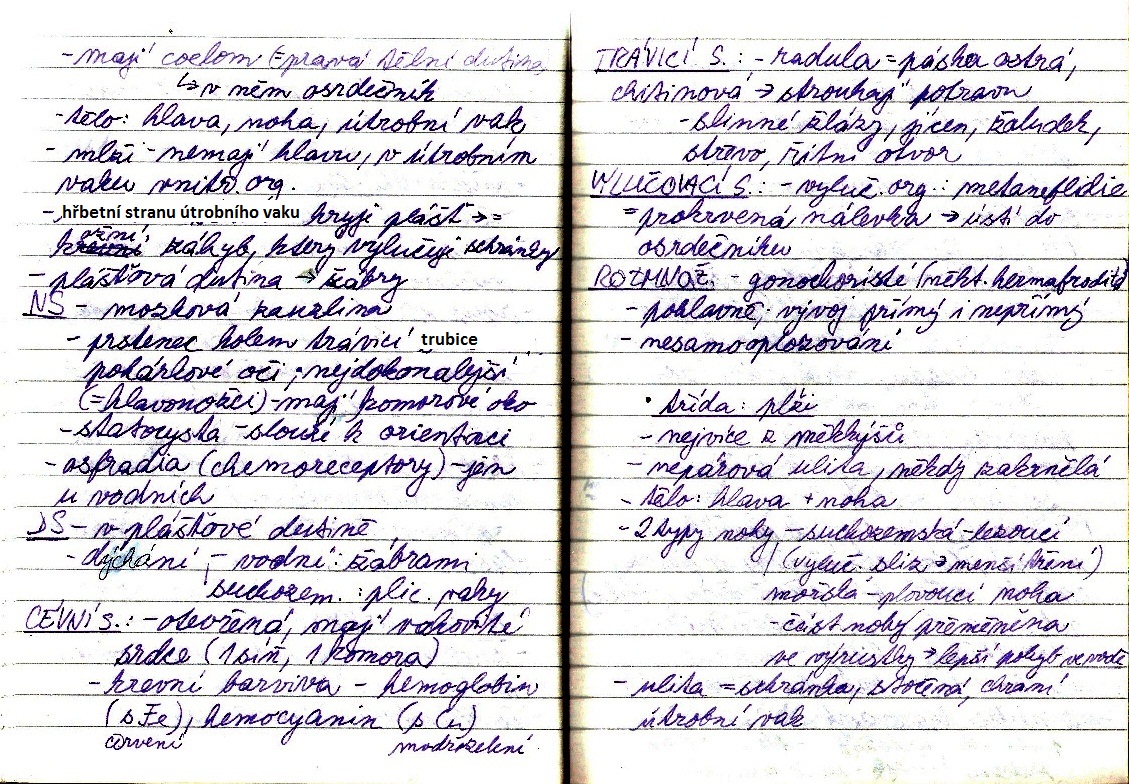 - mají coelom (= pravá tělní dutina)
↳ v něm osrdečník
- tělo: hlava, noha, útrobní vak
- mlži - nemají hlavu, v útrobním
vaku vnitř. org.
- hřbetní stranu útrobního vaku kryje plášť → =
záhyb, který vylučuje schránky
- plášťová dutina → žábry
NS - mozková zauzlina
- prstenec kolem trávicí trubice
pohárkové oči; nejdokonalejší
(= hlavonožci) - mají komorové oko
- statocysta - slouží k orientaci
- osfradia (chemoreceptory) - jen
u vodních
DS - v plášťové dutině
- dýchání - vodní: žábrami
suchozem.: plic. vaky
CÉVNÍ S.: - otevřená, mají vakovité
srdce (1 síň, 1 komora)
- krevní barviva - hemoglobin
(s Fe), hemocyanin (s Cu)
červení modrozelení
TRÁVICÍ S.: - radula = páska ostrá,
chitinová → strouhají potravu
- slinné žlázy, jícen, žaludek,
střevo, řitní otvor
VYLUČOVACÍ S.: - vyluč. org.: metanefridie
= prokrvená nálevka → ústí do
osrdečníku
ROZMNAŽ. - gonochoristé (někt. hermafrodité)
- pohlavně; vývoj přímý i nepřímý
- nesamooplozování
• třída: plži
- nejvíce z měkkýšů
- nepárová ulita, někdy zakrnělá
- tělo: hlava + noha
- 2 typy nohy - suchozemská - lezoucí
(vyluč. sliz → menší tření)
mořská - plovoucí noha
- část nohy přeměněna
ve výrustky → lepší pohyb ve vodě
- ulita = schránka, stočená, chrání
útrobní vak